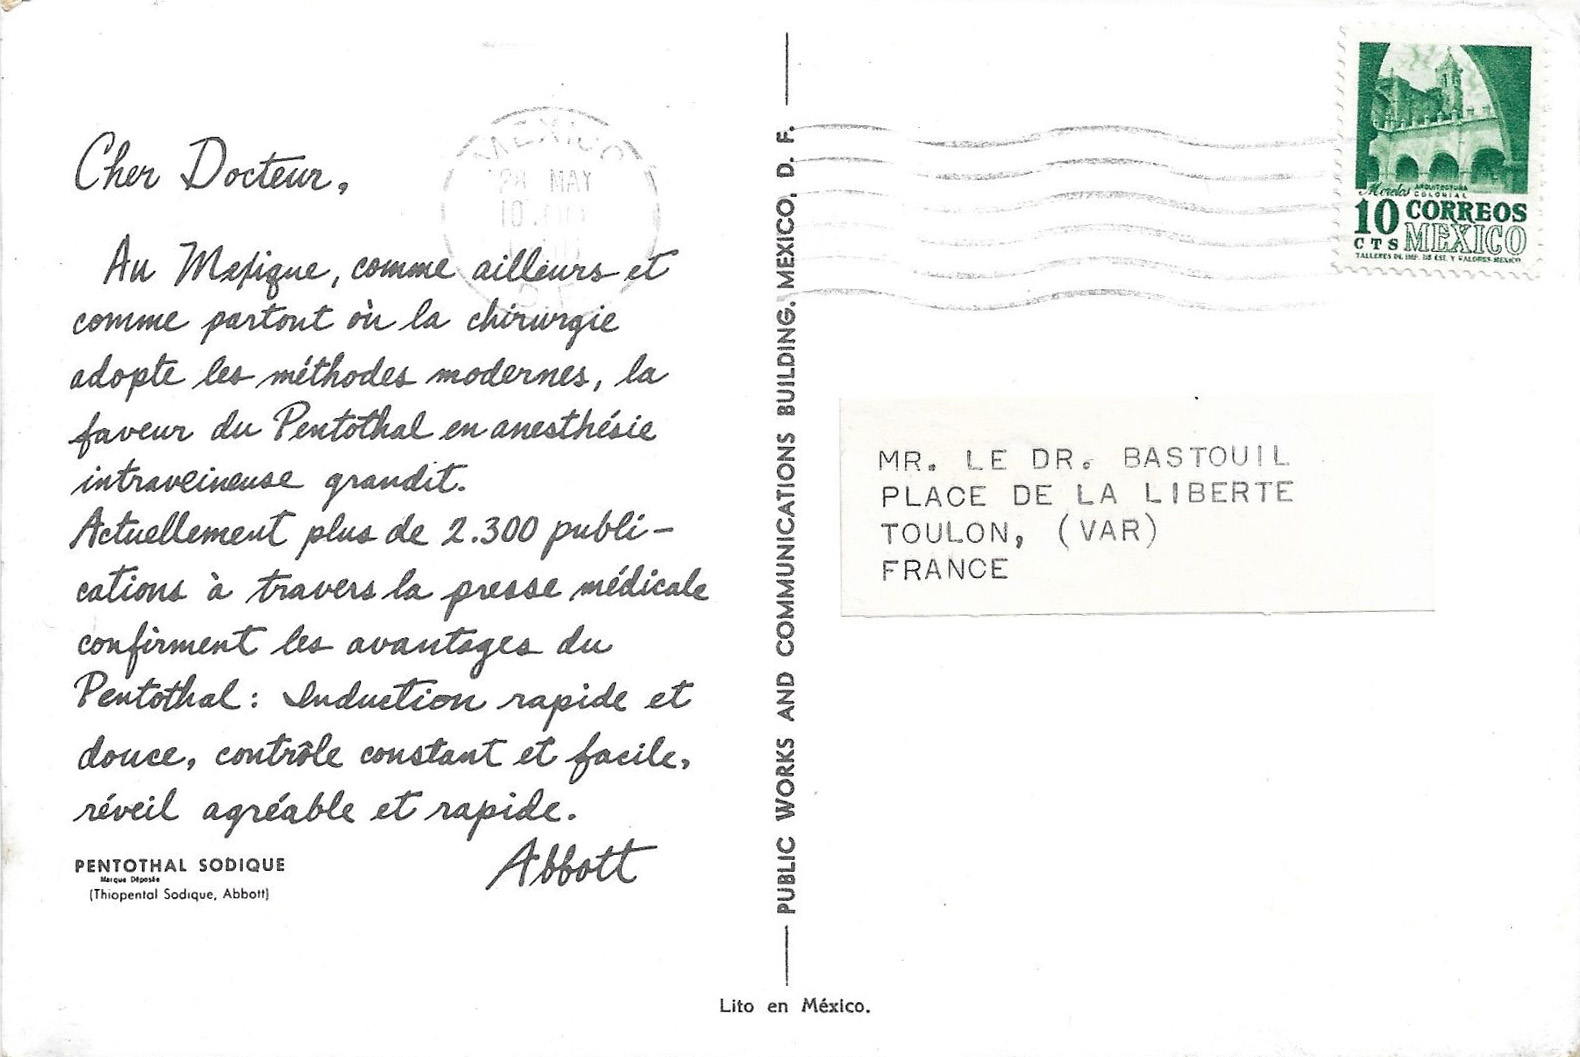 Cher Docteur,
Au Mexique, comme ailleurs et
comme partout où la chirurgie
adopte les méthodes modernes, la
faveur du Pentothal en anesthésie
intraveineuse grandit.
Actuellement plus de 2.300 publi-
cations à travers la presse médicale
confirment les avantages du
Pentothal : Induction rapide et
douce, contrôle constant et facile,
réveil agréable et rapide.
Abbott
PENTOTHAL SODIQUE
Marque Déposée
(Thiopental Sodique, Abbott)
MEXICO
MAY
PUBLIC WORKS AND COMMUNICATIONS BUILDING. MEXICO, D. F.
Morelos ARQUITECTURA
COLONIAL
10 CORREOS
CTS MEXICO
TALLERES DE IMP. DE EST. Y VALORES-MEXICO
MR. LE DR. BASTOUIL
PLACE DE LA LIBERTE
TOULON, (VAR)
FRANCE
Lito en México.